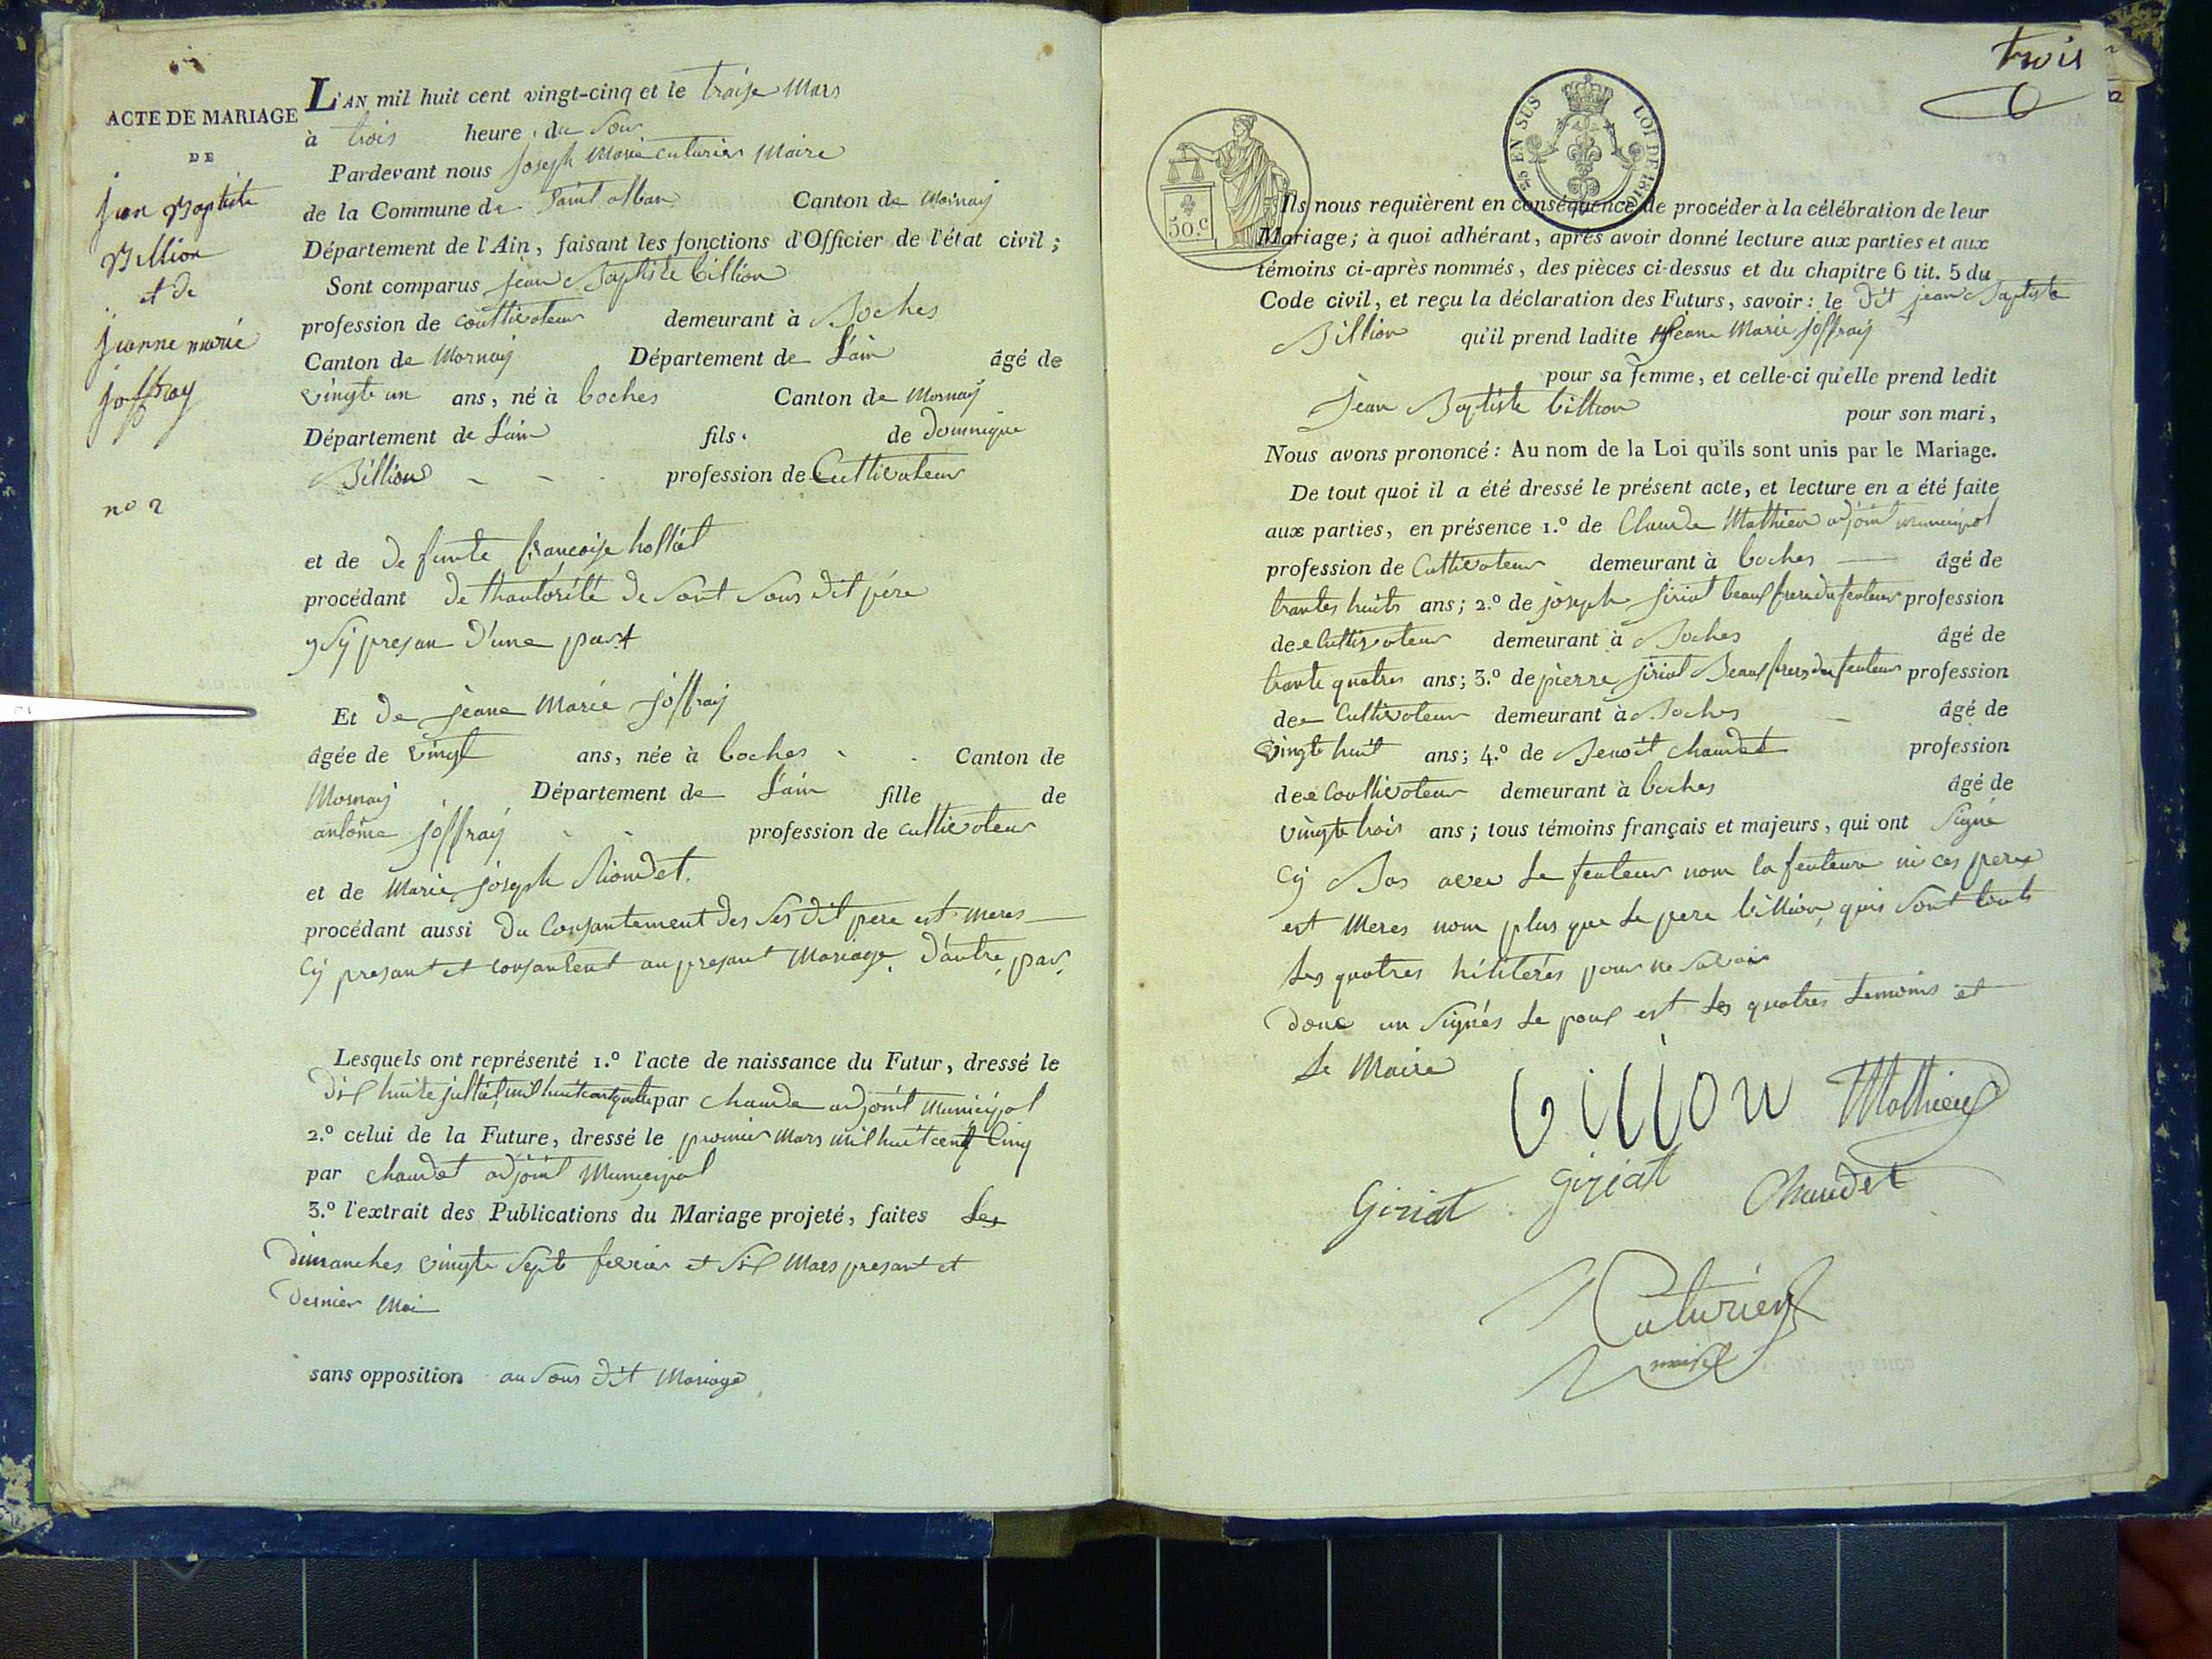 ACTE DE MARIAGE
DE
jean Baptiste
Billion
et de
jeanne marie
joffray
no 2
L'AN mil huit cent vingt-cinq et le traise Mars
à trois heure du Soir
Pardevant nous joseph Marie cuturier Maire
de la Commune de Saint alban Canton de Mornay
Département de l'Ain, faisant les fonctions d'Officier de l'état civil;
Sont comparus jean Baptiste billion
profession de coultivateur demeurant à Boches
Canton de Mornay Département de L'ain âgé de
vingte un ans, né à boches Canton de Mornay
Département de L'ain fils de Dominique
Billion profession de Cultivateur
et de de funte françoise holliat
procédant de thautorité de Sont Sous dit père
y Sy presan d'une part
Et de jeane Marie joffray
âgée de vingt ans, née à boches Canton de
Mornay Département de L'ain fille de
antoine joffray profession de cultivateur
et de Marie joseph Riondet.
procédant aussi du Consantement des Ses dit pere est meres
Cy presant et consantent au presant Mariage d'autre par
Lesquels ont représenté 1.º l'acte de naissance du Futur, dressé le
dix huite julliet mil huit cent quatre par chaude adjoint Municipal
2.º celui de la Future, dressé le premier Mars mil huit cent Cinq
par chaudet adjoint Municipal
3.º l'extrait des Publications du Mariage projeté, faites Les
dimanches vingte Sept fevrier et Six Mars presant et
dernier Moi
sans opposition au Sous dit Mariage
trois
50.c
2/5 EN SUS LOI DE 1816
Ils nous requièrent en conséquence de procéder à la célébration de leur
Mariage; à quoi adhérant, après avoir donné lecture aux parties et aux
témoins ci-après nommés, des pièces ci-dessus et du chapitre 6 tit. 5 du
Code civil, et reçu la déclaration des Futurs, savoir: le dit jean Baptiste
Billion qu'il prend ladite jeane Marie joffray
pour sa femme, et celle-ci qu'elle prend ledit
Jean Baptiste billion pour son mari,
Nous avons prononcé: Au nom de la Loi qu'ils sont unis par le Mariage.
De tout quoi il a été dressé le présent acte, et lecture en a été faite
aux parties, en présence 1.º de Claude Mathieu adjoint municipal
profession de Cultivateur demeurant à boches âgé de
trantes huits ans; 2.º de joseph jiriat beaux frere du feuteur profession
de Cultivateur demeurant à Boches âgé de
trante quatres ans; 3.º de pierre jiriat Beaux frers du feuteur profession
de Cultivateur demeurant à Boches âgé de
vingte huit ans; 4.º de Benoit chaudet profession
de Coultivateur demeurant à boches âgé de
vingte trois ans; tous témoins français et majeurs, qui ont Signé
Cy Bas avec Le feuteur nom la feuteure ni ces pere
est Meres nom plus que Le pere billion quis Sont touts
Les quatres hilitérés pour ne Savoir
donc un Signés Le poux est Les quatres temoins et
Le Maire
billion Mathieu
Giriat giriat Chaudet
Cuturier
maire